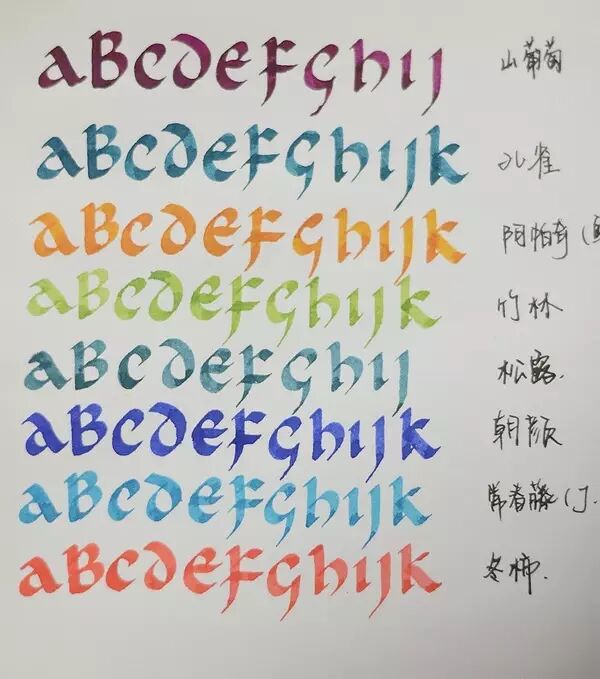 aBcdEFGhij 山葡萄
aBcdEFGhijk 孔雀
aBcdEFGhijk 阿帕奇(
aBcdEFGhijk 竹林
aBcdEFGhij 松露.
aBcdEFGhijk 朝颜
aBcdEFGhijk 常春藤(J.
aBcdEFGhijk 冬柿.